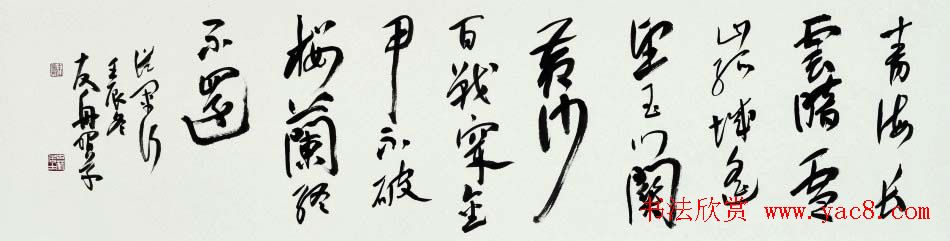 青海长
雲暗雪
山孤城遥
望玉门關
黄沙
百戰穿金
甲不破
楼蘭终
不還
從军行
壬辰冬
友舟
书法欣赏 www.yac8.com